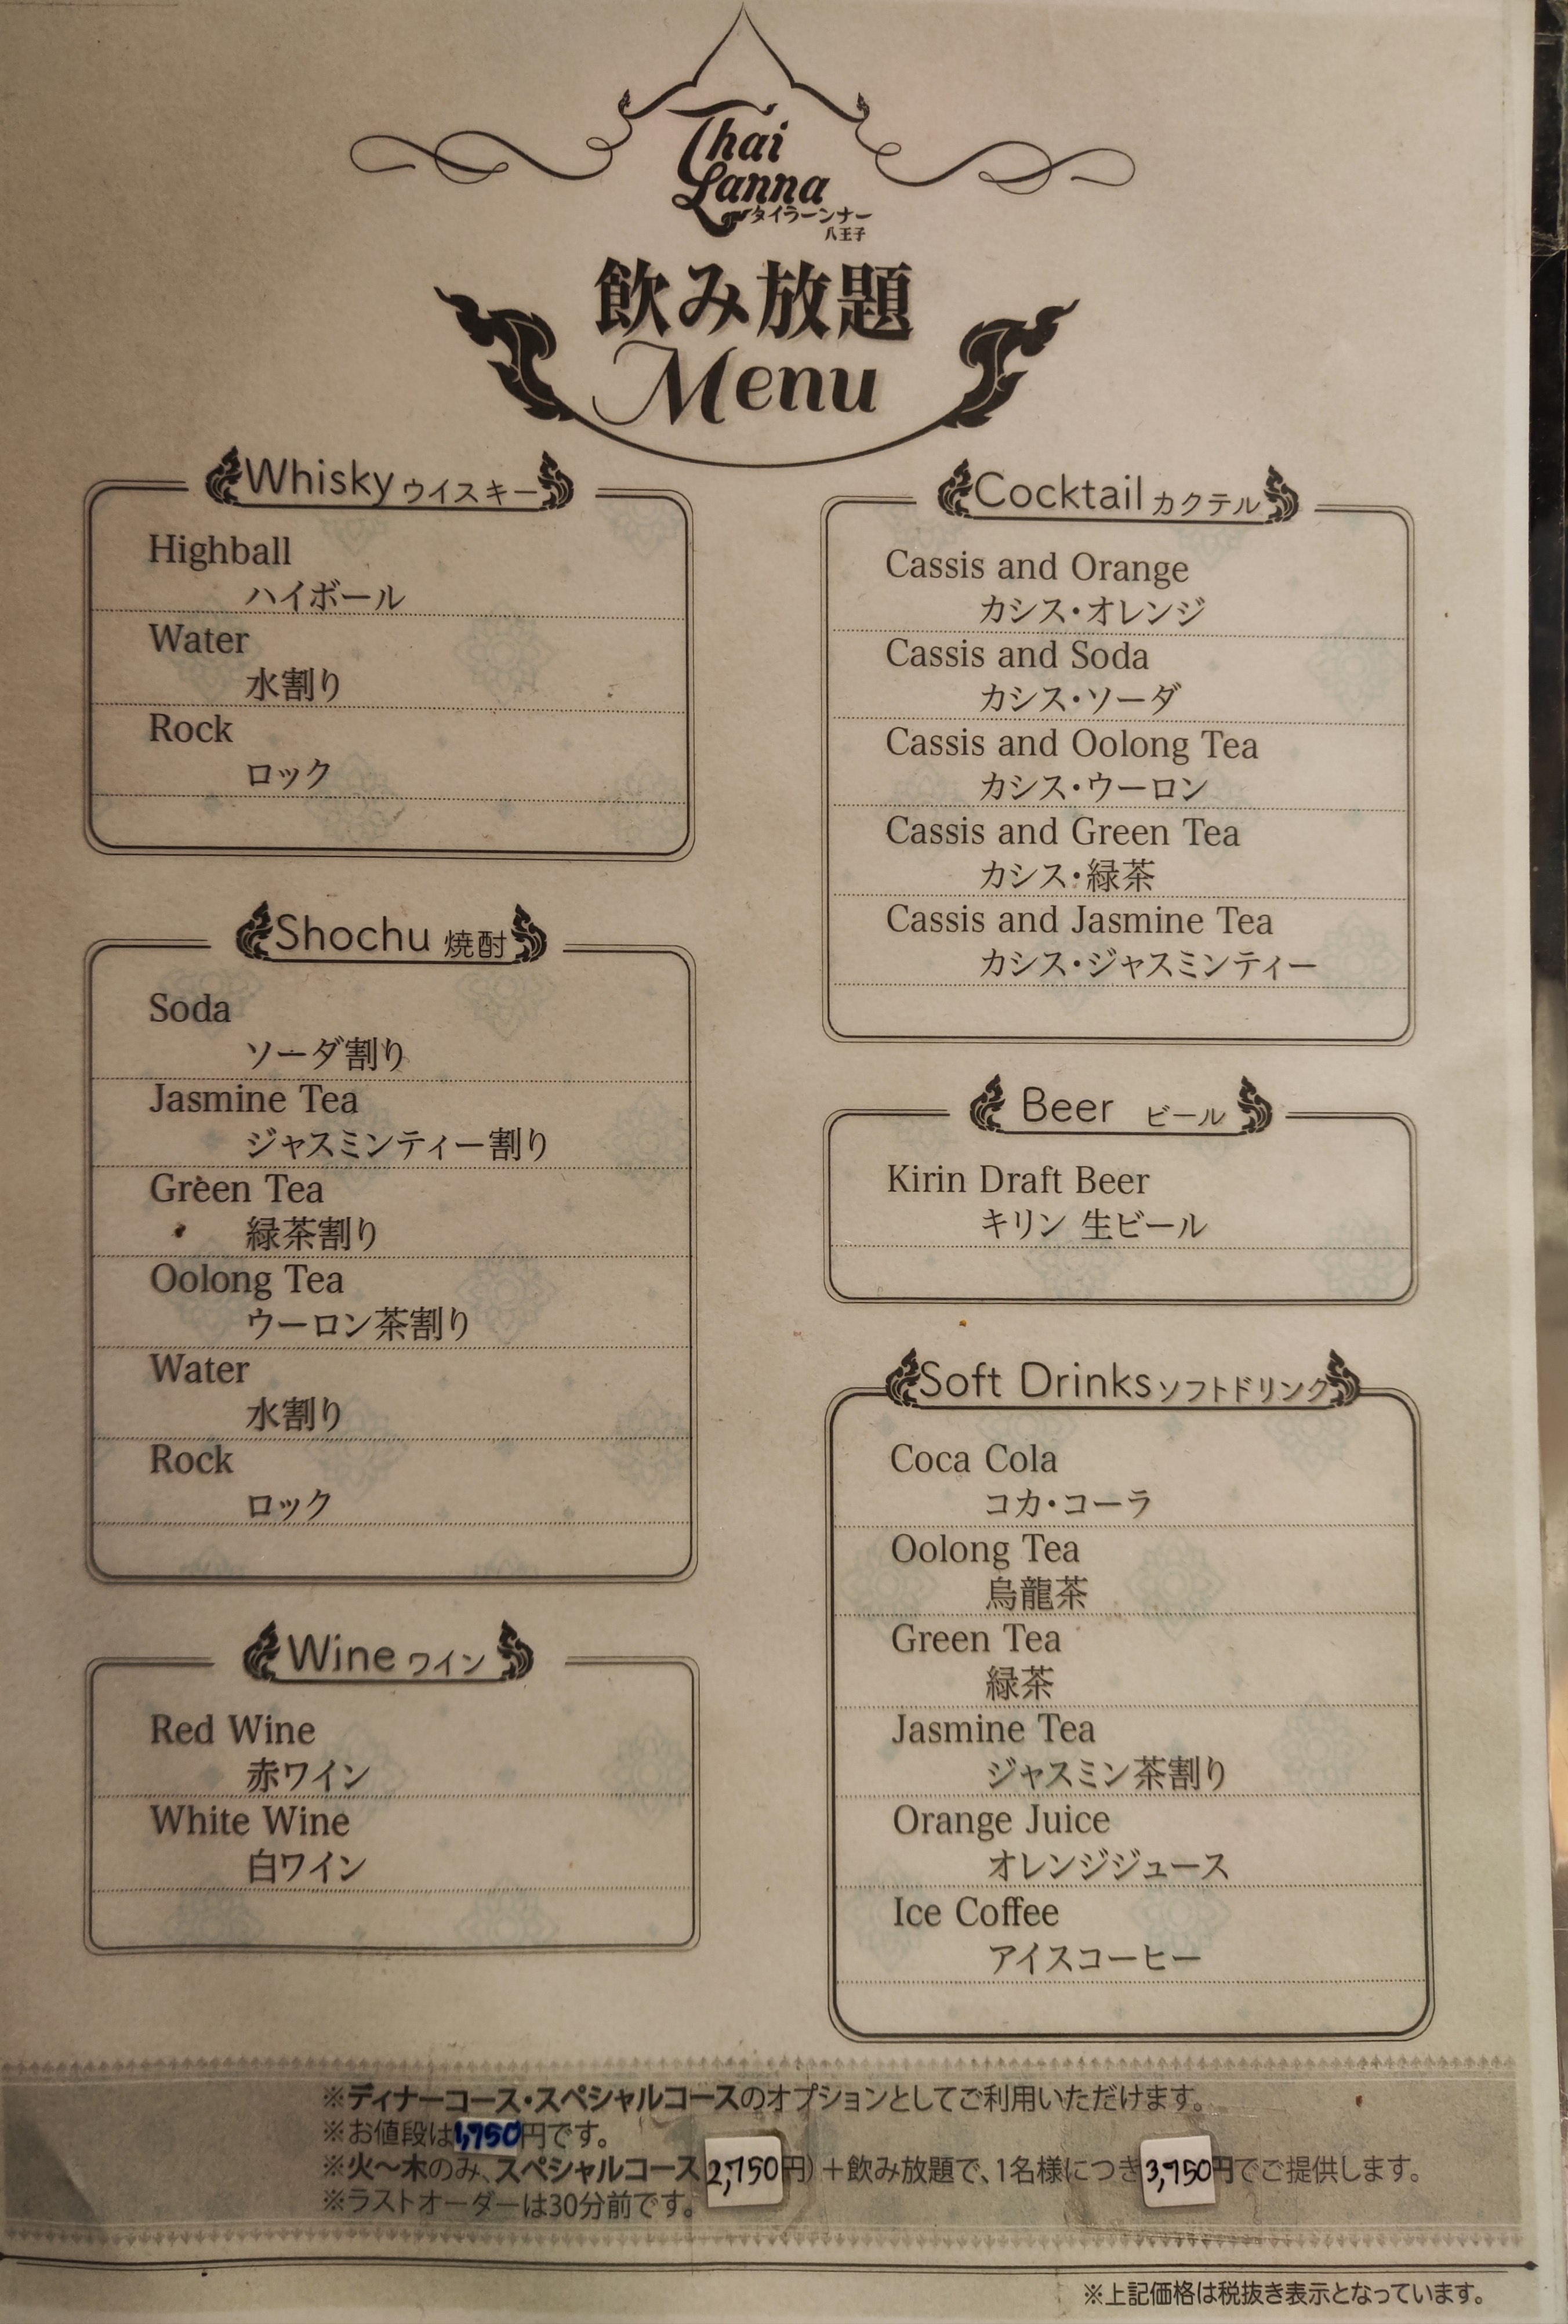 Thai
Lanna
タイラーンナー
八王子
飲み放題
Menu
Whisky ウイスキー
Highball
ハイボール
Water
水割り
Rock
ロック
Shochu 焼酎
Soda
ソーダ割り
Jasmine Tea
ジャスミンティー割り
Green Tea
緑茶割り
Oolong Tea
ウーロン茶割り
Water
水割り
Rock
ロック
Wine ワイン
Red Wine
赤ワイン
White Wine
白ワイン
Cocktail カクテル
Cassis and Orange
カシス・オレンジ
Cassis and Soda
カシス・ソーダ
Cassis and Oolong Tea
カシス・ウーロン
Cassis and Green Tea
カシス・緑茶
Cassis and Jasmine Tea
カシス・ジャスミンティー
Beer ビール
Kirin Draft Beer
キリン 生ビール
Soft Drinks ソフトドリンク
Coca Cola
コカ・コーラ
Oolong Tea
烏龍茶
Green Tea
緑茶
Jasmine Tea
ジャスミン茶割り
Orange Juice
オレンジジュース
Ice Coffee
アイスコーヒー
※ディナーコース・スペシャルコースのオプションとしてご利用いただけます。
※お値段は1,750円です。
※火〜木のみ、スペシャルコース 2,750円)＋飲み放題で、1名様につき3,750円でご提供します。
※ラストオーダーは30分前です。
※上記価格は税抜き表示となっています。